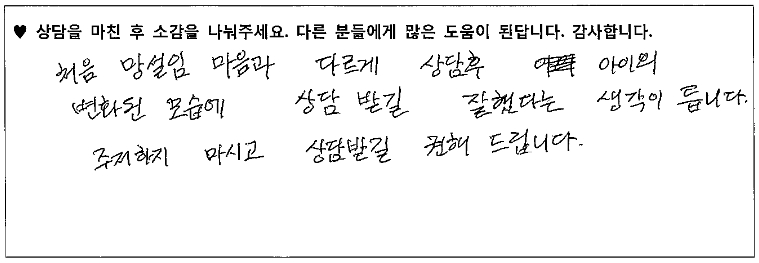 ♥ 상담을 마친 후 소감을 나눠주세요. 다른 분들에게 많은 도움이 된답니다. 감사합니다.
처음 망설임 마음과 다르게 상담후 아이의
변화된 모습에 상담 받길 잘했다는 생각이 듭니다.
주저하지 마시고 상담받길 권해 드립니다.